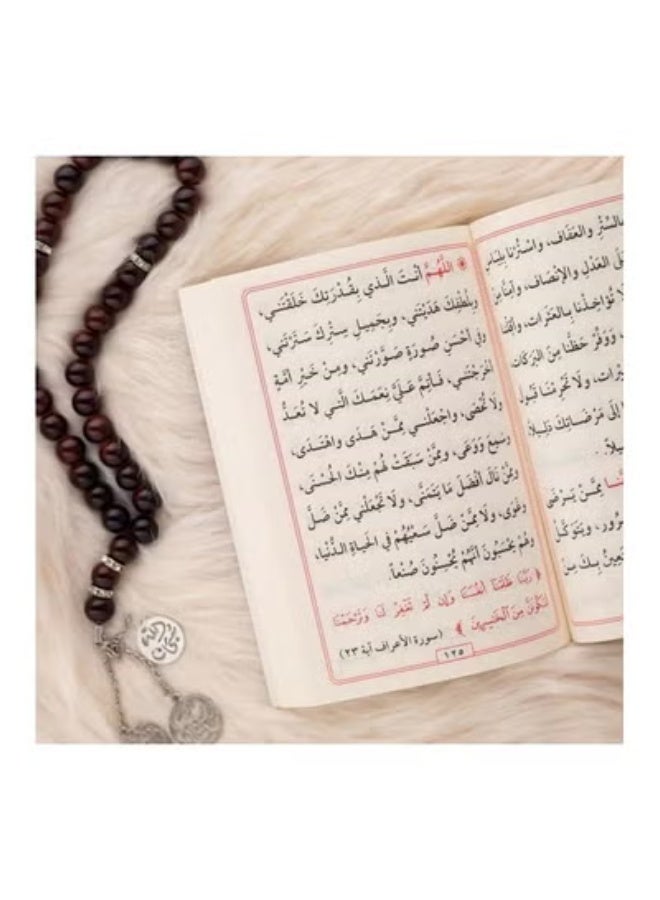 اللَّهُمَّ أَنْتَ الَّذِي بِقُدْرَتِكَ خَلَقْتَنِي،
وبِلُطْفِكَ هَدَيْتَنِي، وبِجَمِيلِ سِتْرِكَ سَتَرْتَنِي،
وفِي أَحْسَنِ صُورَةٍ صَوَّرْتَنِي، ومِنْ خَيْرِ أُمَّةٍ
أَخْرَجْتَنِي، فَأَتِمَّ عَلَيَّ نِعَمَكَ الَّتِي لَا تُعَدُّ
ولَا تُحْصَى، واجْعَلْنِي مِمَّنْ هَدَى واهْتَدَى،
وسَمِعَ وَوَعَى، ومِمَّنْ سَبَقَتْ لَهُمْ مِنْكَ الْحُسْنَى،
ومِمَّنْ نَالَ أَفْضَلَ مَا يَتَمَنَّى، ولَا تَجْعَلْنِي مِمَّنْ ضَلَّ
وغَوَى، ولَا مِمَّنْ ضَلَّ سَعْيُهُمْ فِي الْحَيَاةِ الدُّنْيَا،
وهُمْ يَحْسَبُونَ أَنَّهُمْ يُحْسِنُونَ صُنْعاً.
﴿ رَبَّنَا ظَلَمْنَا أَنفُسَنَا وَإِن لَّمْ تَغْفِرْ لَنَا وَتَرْحَمْنَا
لَنَكُونَنَّ مِنَ الْخَاسِرِينَ ﴾ (سورة الأعراف آية ٢٣)
١٢٥
بِالسِّتْرِ والعَفَافِ، واسْتُرْنَا بِلِبَاسِ
العَدْلِ والإِنْصَافِ،
لَا تُؤَاخِذْنَا بِالعَثَرَاتِ، وأَقِلْنَا
وَوَفِّرْ حَظَّنَا مِنَ البَرَكَاتِ
ولَا تَحْرِمْنَا قَبُولَ
إِلَى مَرْضَاتِكَ دَلِيلاً،
مِمَّنْ يَرْضَى
ويَتَوَكَّلُ
بِكَ مِنْ
سبحان الله